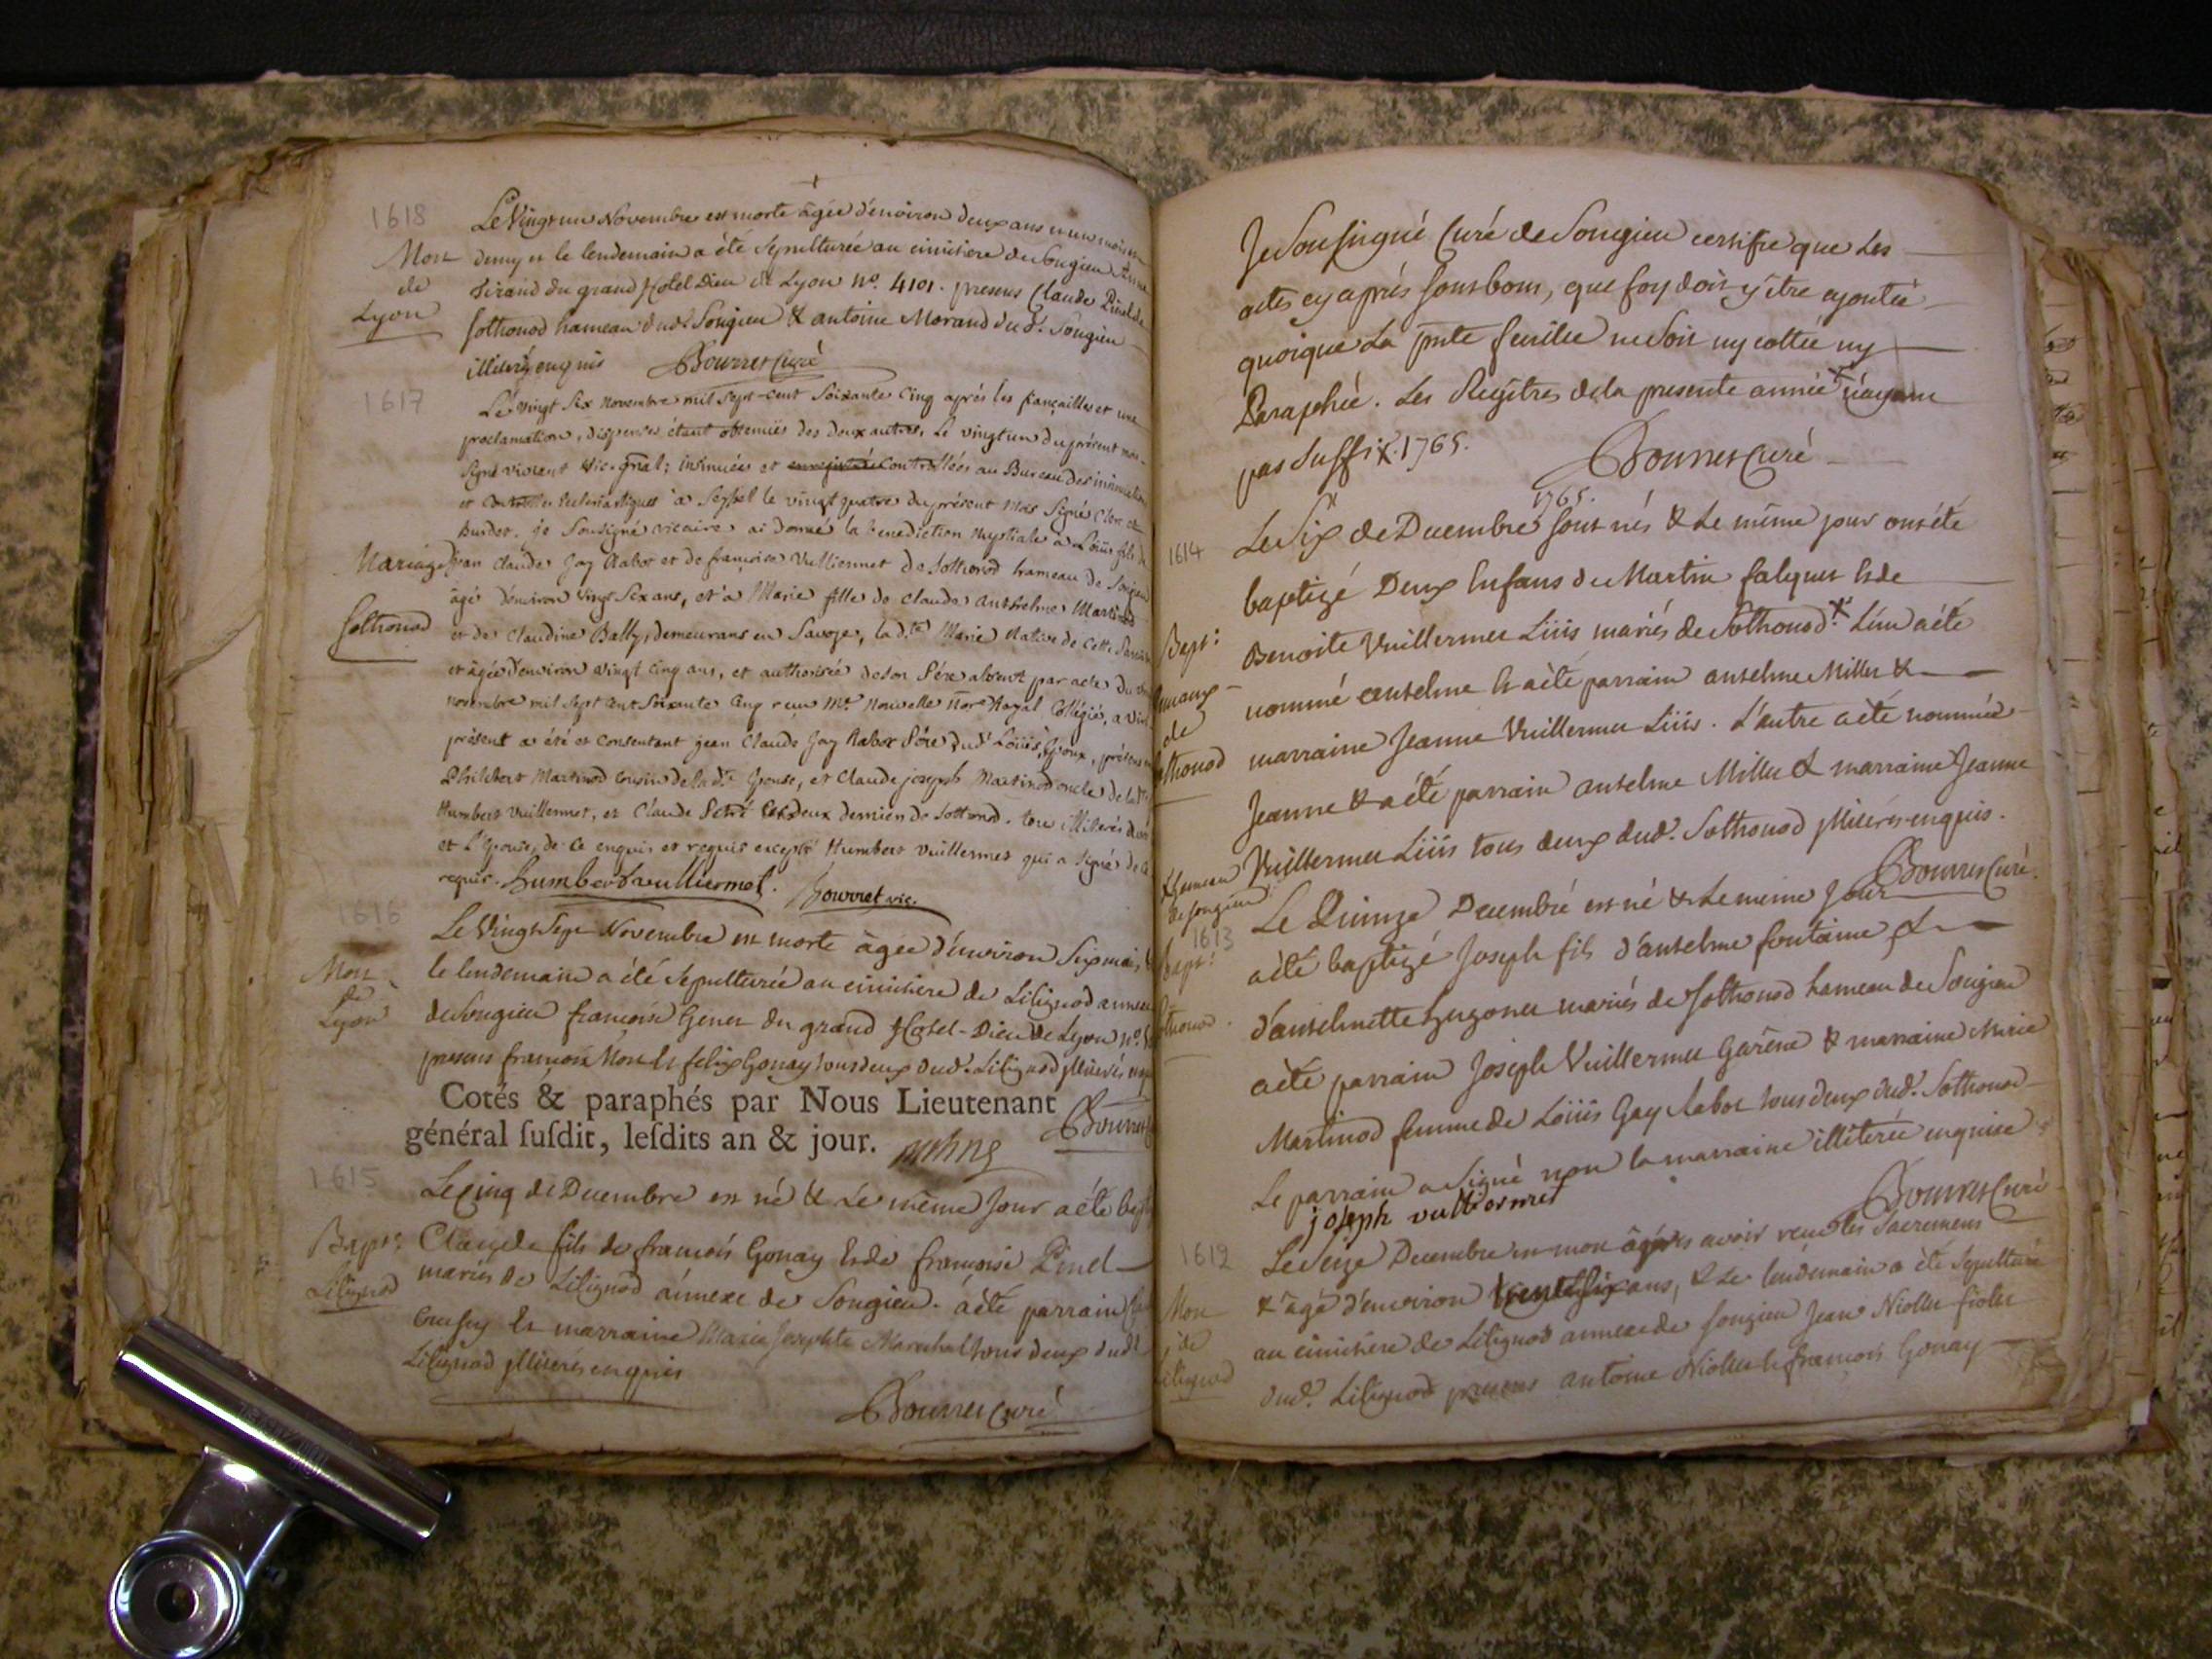 1618
Le vingt un Novembre est morte âgée d'environ deux ans un mois
Mort
demy et le lendemain a été sepulturée au cimitiere de Songieu
de
Lyon
Giraud du grand hotel Dieu de Lyon n.º 4101. presens Claude Pinel de
Sothonod hameau dud. Songieu & antoine Morand dud. Songieu
illiterés enquis Bourret Curé
1617
Le vingt six novembre mil sept-cent soixante cinq après les fiançailles et une
proclamation, dispenses étant obtenües des deux autres, le vingt un du présent mois
signé vivient vic. gñal; insinuées et controllées au Bureau des insinuations
et controlle ecclesiastiques à Seyssel le vingt quatre du présent mois signé
Burdet. je soussigné vicaire ai donné la benediction nuptiale à Loüis fils de
Mariage
Jean claude Jay Rabot et de françoise Vuilliermet de Sothonod hameau de Songieu
âgé d'environ vingt six ans, et à Marie fille de claude anthelme Martinod
Sothonod
et de Claudine Bally, demeurans en Savoye, la d.te Marie native de cette Paroisse
et âgée d'environ vingt cinq ans, et authorisée de son Pére absent par acte du
novembre mil sept cent soixante cinq reçu M.e Nouvelle No.re Royal Collégié, a
présent a été et consentant jean Claude Jay Rabot Pére dud Loüis Epoux, présens
Philibert Martinod cousin de la d.te Epouse, et Claude joseph Martinod oncle de la
Humbert Vuillermet, et Claude les deux derniers de Sothonod. tous illiterés
et l'Epouse, de ce enquis et requis excepté Humbert Vuillermet qui a signé de ce
requis. humbert vulliermet. Bourret vic.
1616
Le Vingt Sept Novembre est morte âgée d'environ Six mois,
Mort
de
Lyon
le lendemain a été sepulturée au cimitiere de Lilignod annexe
de Songieu françoise Genet du grand Hotel-Dieu de Lyon n.º
presens françois Mort & felix Gonay tous deux dud. Lilignod illiterés
Cotés & paraphés par Nous Lieutenant
Bourret
général susdit, lesdits an & jour.
1615
Le Cinq de Decembre est né & Le même Jour a été
Bapt:
Lilignod
Claude fils de françois Gonay & de françoise Pinel
mariés de Lilignod annexe de Songieu. a été parrain
& marraine Maria Josephte Marechal tous deux dud
Lilignod illiterés enquis
Bourret Curé
Je Soussigné Curé de Songieu certifie que Les
actes cy après sont bons, que foy doit y être ajoutée
quoique La pnte feuille ne Soit ny cottée ny
Paraphée. Les Régitres de la presente année n'ayant
pas Suffi. 1765.
Bourret Curé
1614
1765.
Le Six de Decembre sont nés & Le même jour ont été
baptizé Deux Enfans de Martin falquet & de
Bapt:
Jumaux
de
Sothonod
Benoite Vuillermet Liüs mariés de Sothonod. L'un a été
nommé anselme & a été parrain anselme Millet &
marraine Jeanne Vuillermet Liüs. L'autre a été nommée
Jeanne & a été parrain anselme Millet & marraine Jeanne
Vuillermet Liüs tous deux dud. Sothonod illiterés enquis.
hameau
de songieu
Bourret Curé.
1613
Le Quinze Decembre est né & Le meme Jour
Bapt:
a été baptizé Joseph fils d'anselme fontaine &
Sothonod.
d'anselmette Hugonet mariés de Sothonod hameau de Songieu
a été parrain Joseph Vuillermet Garêne & marraine Marie
Martinod femme de Loüis Gay Rabot tous deux dud. Sothonod
Le parrain a Signé non la marraine illiterée enquise
joseph vulliermet
Bourret Curé
1612
Le Seize Decembre est mort après avoir reçu les Sacremens
Mort
de
Lilignod
& âgé d'environ trente six ans, & Le lendemain a été Sepulturé
au cimitiere de Lilignod annexe de Songieu Jean Niollet fiolet
dud. Lilignod presens antoine Niollet & françois Gonay